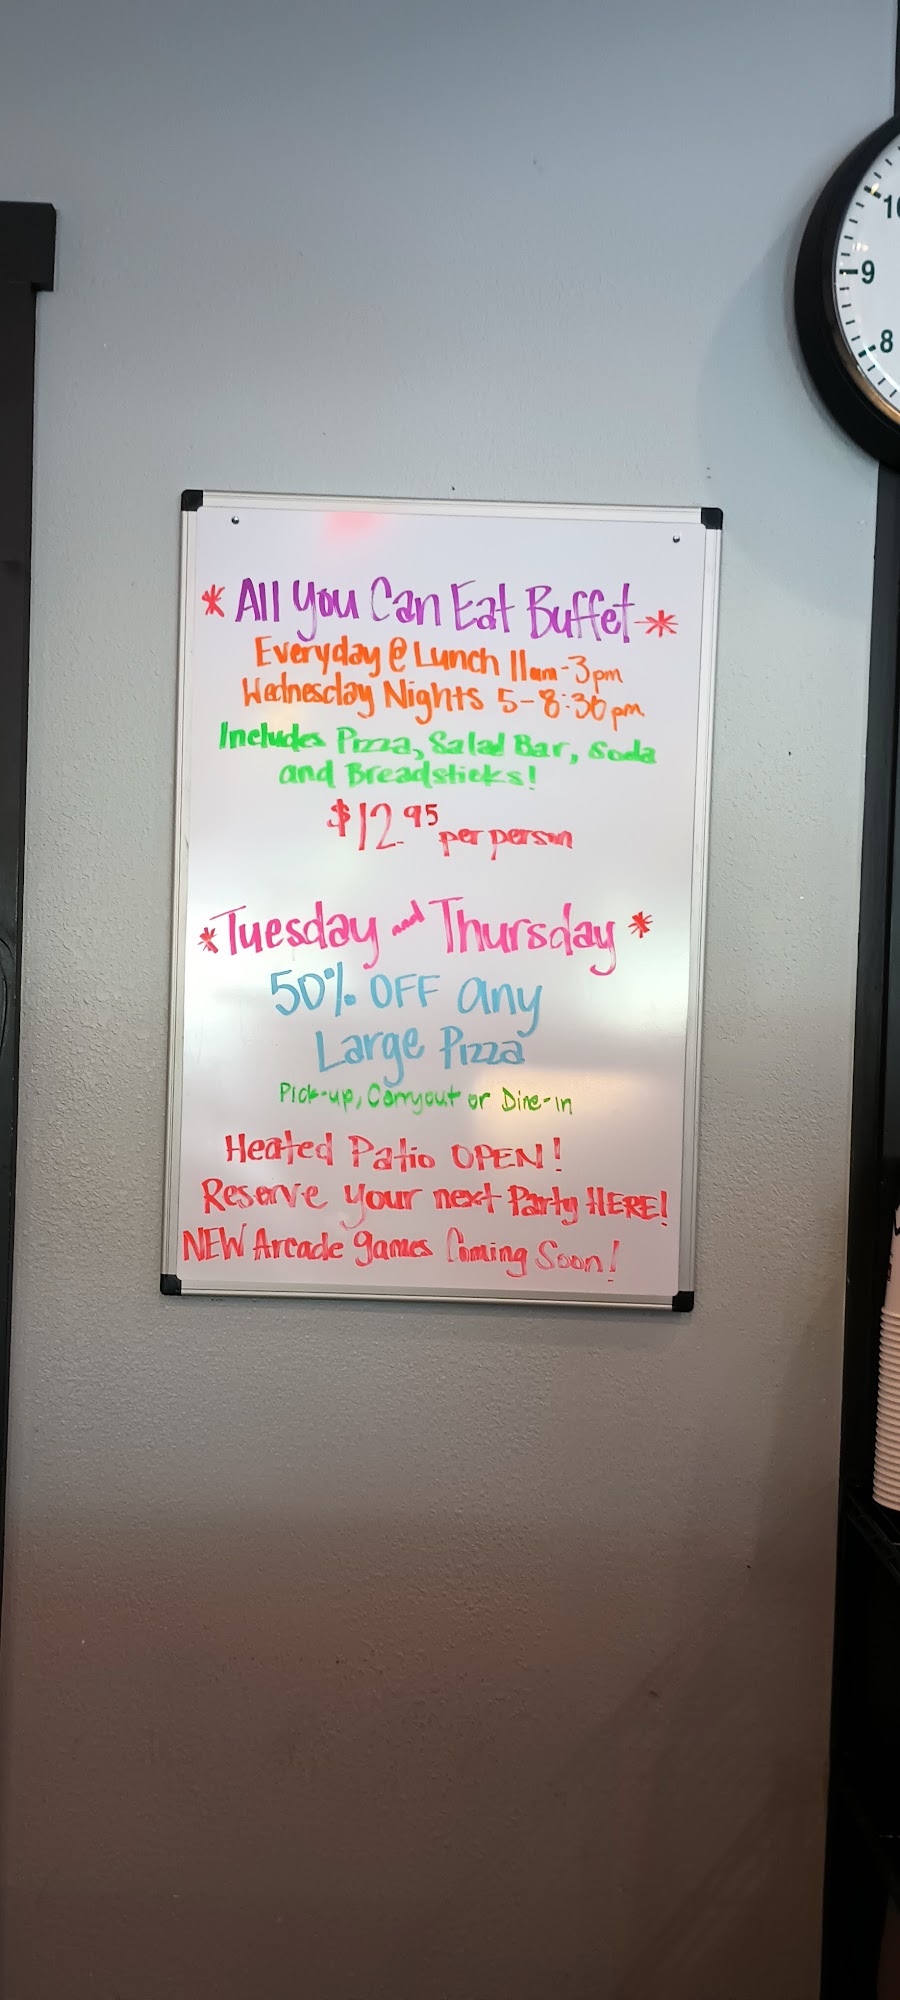 * All You Can Eat Buffet *
Everyday @ Lunch 11am-3pm
Wednesday Nights 5-8:30pm
Includes Pizza, Salad Bar, Soda
and Breadsticks!
$12.95 per person
* Tuesday and Thursday *
50% OFF any
Large Pizza
Pick-up, Carryout or Dine-in
Heated Patio OPEN!
Reserve your next Party HERE!
NEW Arcade games Coming Soon!
10
9
8